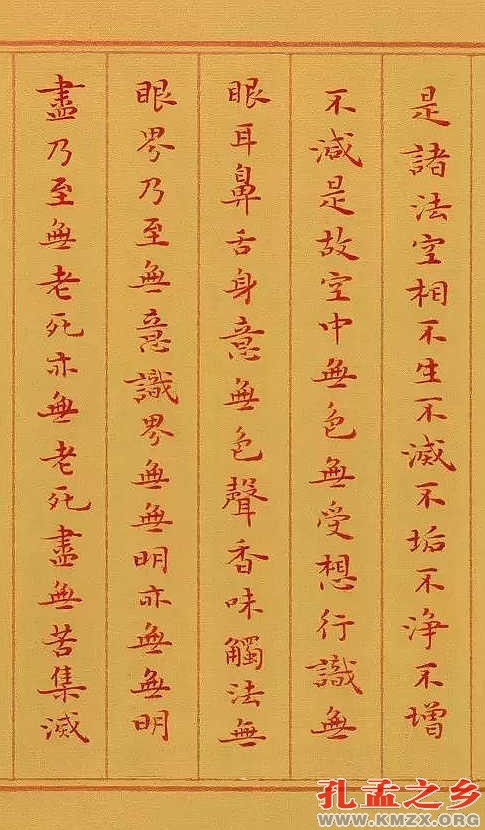 是諸法空相不生不滅不垢不淨不增
不減是故空中無色無受想行識無
眼耳鼻舌身意無色聲香味觸法無
眼界乃至無意識界無無明亦無無明
盡乃至無老死亦無老死盡無苦集滅
孔孟之乡
WWW.KMZX.ORG